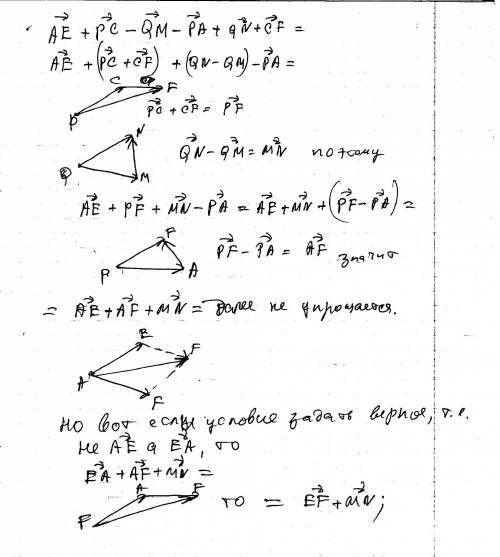 AE + PC − QM − PA + QN + CF =
AE + (PC + CF) + (QN − QM) − PA =
C F
P
PC + CF = PF
N
Q
M
QN − QM = MN поэтому
AE + PF + MN − PA = AE + MN + (PF − PA) =
F
P A
PF − PA = AF значит
= AE + AF + MN = далее не упрощается.
E
A F
F
Но вот если условие задать верное, т.е.
не AE а EA, то
EA + AF + MN =
A F
то = EF + MN;